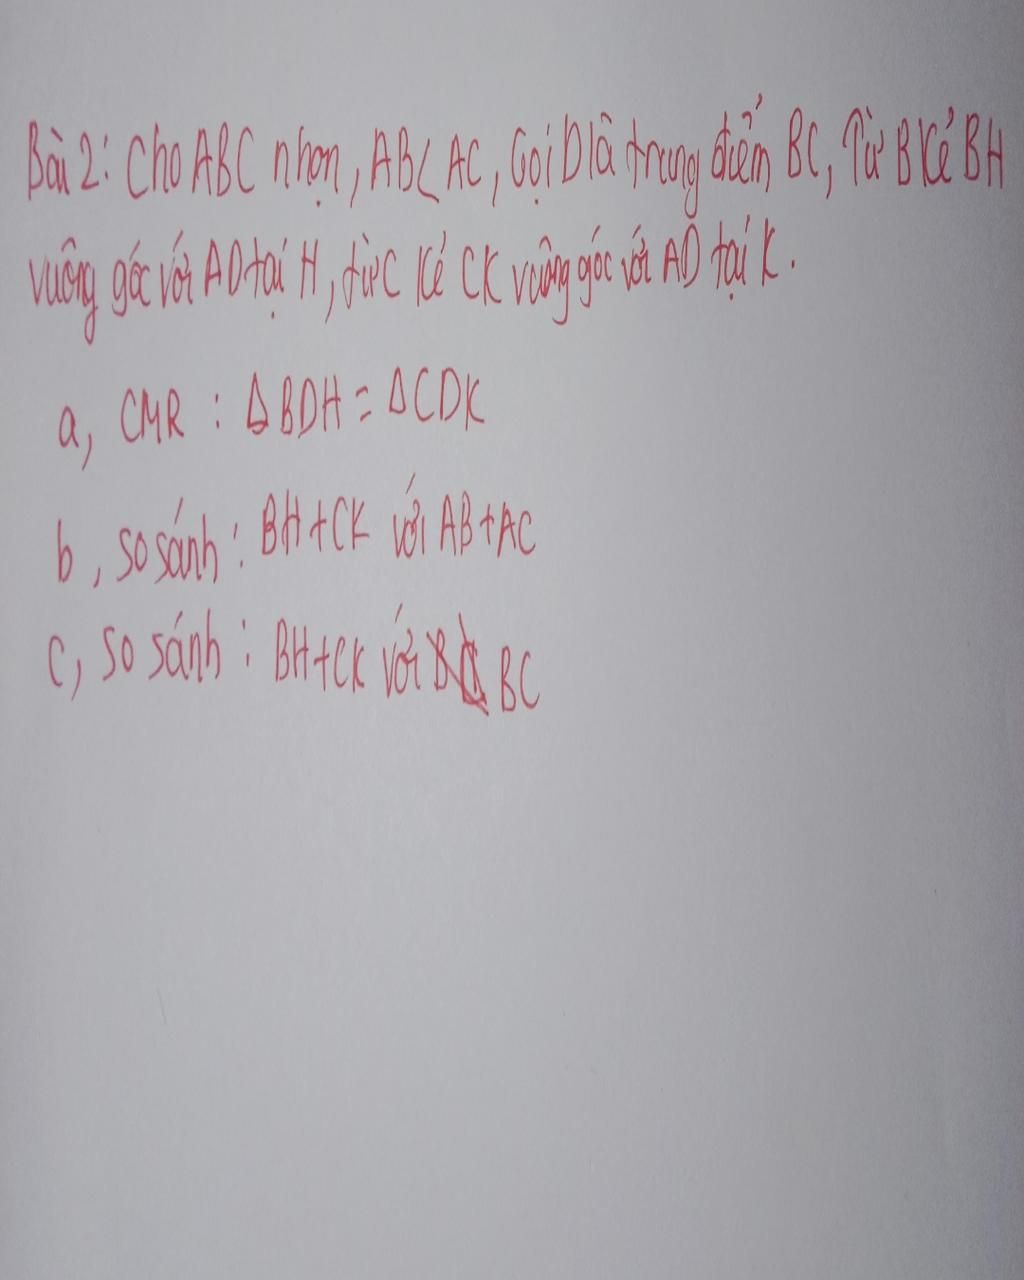 Bài 2: Cho ABC nhọn, AB < AC, Gọi D là trung điểm BC, Từ B kẻ BH
vuông góc với AD tại H, từ C kẻ CK vuông góc với AD tại K.
a, CMR : Δ BDH = Δ CDK
b, so sánh : BH + CK với AB + AC
c, so sánh : BH + CK với BC